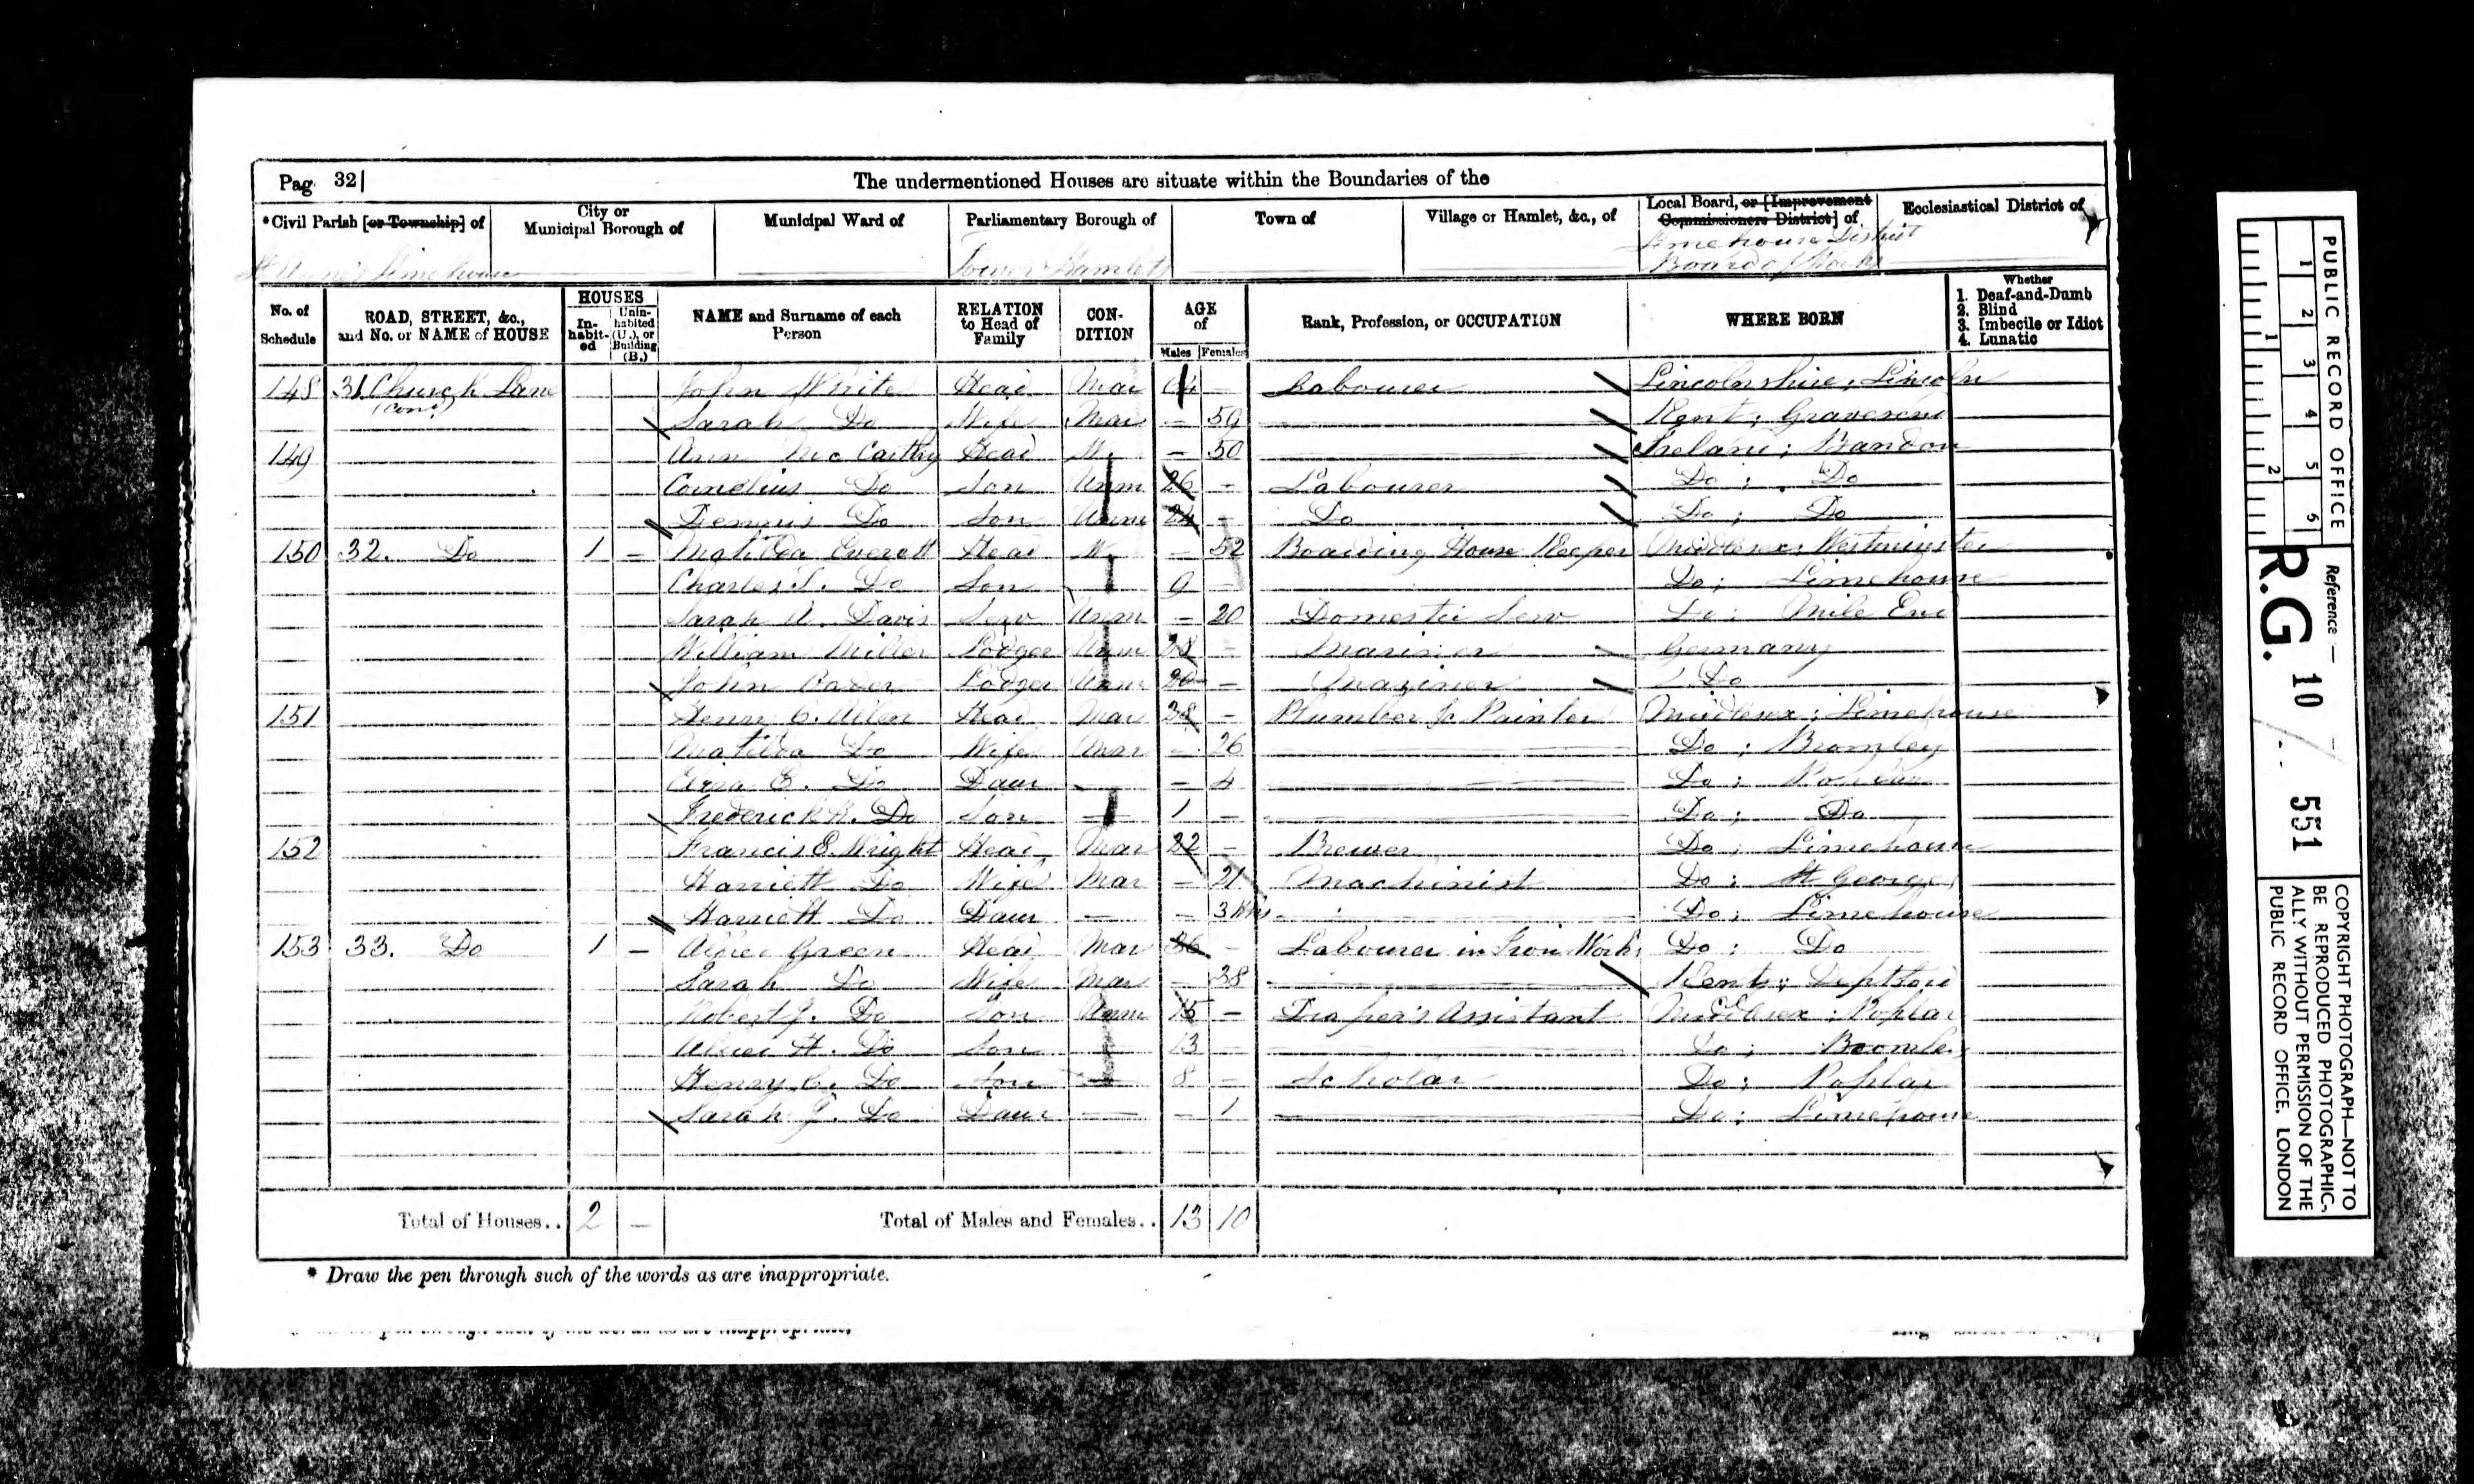 Pag. 32
The undermentioned Houses are situate within the Boundaries of the
*Civil Parish [or Township] of
City or Municipal Borough of
Municipal Ward of
Parliamentary Borough of
Town of
Village or Hamlet, &c., of
Local Board, or [Improvement Commissioners District] of
Ecclesiastical District of
St Anne's Limehouse
Tower Hamlets
Limehouse District
Board of Works
No. of Schedule
ROAD, STREET, &c., and No. or NAME of HOUSE
HOUSES
In-habit-ed
Unin-habited (U.), or Building (B.)
NAME and Surname of each Person
RELATION to Head of Family
CON-DITION
AGE of
Males
Females
Rank, Profession, or OCCUPATION
WHERE BORN
Whether
1. Deaf-and-Dumb
2. Blind
3. Imbecile or Idiot
4. Lunatic
148 31. Church Lane (Cont.) John White Head Mar 64 – Labourer Lincolnshire; Lincoln
Sarah Do Wife Mar – 59 Kent; Gravesend
149 Ann McCarthy Head W. – 50 Ireland; Bandon
Cornelius Do Son Unm 26 – Labourer Do; Do
Dennis Do Son Unm 24 – Do Do; Do
150 32. Do 1 – Matilda Everett Head W. – 52 Boarding House Keeper Middlesex; Westminster
Charles Do Son – 9 – Do; Limehouse
Sarah A. Davis Serv Unm – 20 Domestic Serv Do; Mile End
William Miller Lodger Unm 28 – Mariner Germany
John Lodger Unm – Mariner Do
151 Henry C. Allen Head Mar 28 – Plumber & Painter Middlesex; Limehouse
Matilda Do Wife Mar – 26 Do; Bromley
E. Do Daur – – 4 Do; Poplar
Frederick Do Son – 1 – Do; Do
152 Francis E. Wright Head Mar 22 – Brewer Do; Limehouse
Harriett Do Wife Mar – 21 Machinist Do; St George
Harriett Do Daur – – 3 Wks Do; Limehouse
153 33. Do 1 – Alfred Green Head Mar 36 – Labourer in Iron Works Do; Do
Sarah Do Wife Mar – 38 Kent; Deptford
Robert J. Do Son Unm 15 – Draper's Assistant Middlesex; Poplar
Alfred H. Do Son – 13 – Do; Bromley
Henry C. Do Son – 8 – Scholar Do; Poplar
Sarah J. Do Daur – – 1 Do; Limehouse
Total of Houses.. 2 – Total of Males and Females.. 13 10
* Draw the pen through such of the words as are inappropriate.
PUBLIC RECORD OFFICE
1 2 3 4 5 6
1 2
Reference –
R.G. 10 / 551
COPYRIGHT PHOTOGRAPH—NOT TO
BE REPRODUCED PHOTOGRAPHIC-
ALLY WITHOUT PERMISSION OF THE
PUBLIC RECORD OFFICE, LONDON